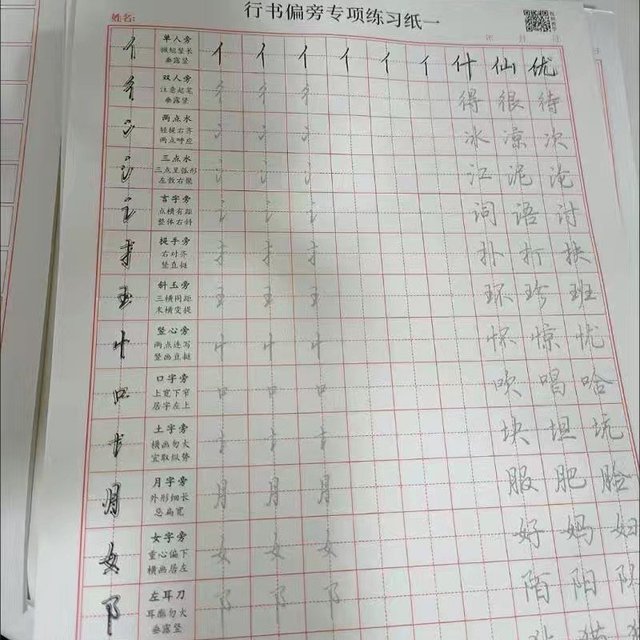 行书偏旁专项练习纸一
姓名:
亻 单人旁 撇短竖长 垂露竖 亻 亻 亻 亻 亻 亻 什 仙 优
彳 双人旁 注意起笔 垂露竖 彳 彳 彳 得 很 待
冫 两点水 轻提右齐 两点呼应 冫 冫 冫 冰 凉 次
氵 三点水 三点呈弧形 左散右聚 氵 氵 氵 江 泥 沦
讠 言字旁 点横有距 整体右斜 讠 讠 讠 词 语 讨
扌 提手旁 右对齐 竖直挺 扌 扌 扌 扑 折 扶
王 斜玉旁 三横间距 末横变提 王 王 王 环 珍 班
忄 竖心旁 两点连写 竖画直挺 忄 忄 忄 怀 惊 忧
口 口字旁 上宽下窄 居字左上 口 口 口 吹 唱 哈
土 土字旁 横画勿长 宜取纵势 土 土 土 块 坦 坑
月 月字旁 外形细长 忌扁宽 月 月 月 服 肥 脸
女 女字旁 重心偏下 横画居左 女 女 女 好 妈 妇
阝 左耳刀 耳廓勿大 垂露竖 阝 阝 阝 陌 阳